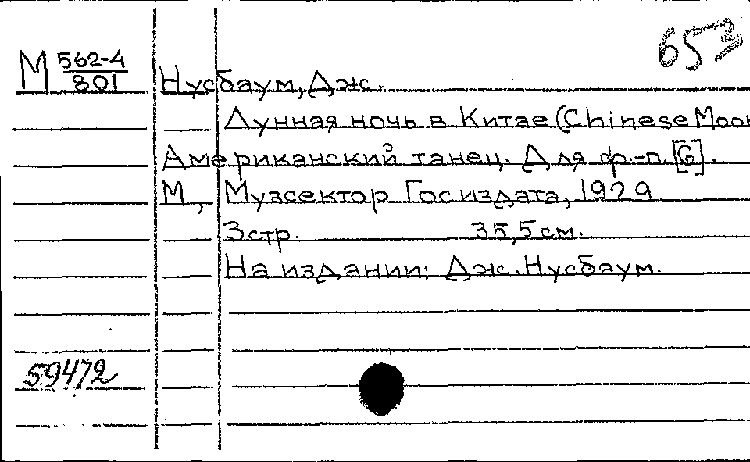 653
М 562-4/801 Нусбаум, Дж.
Лунная ночь в Китае (Chinese Moon
Американский танец. Для ф.-п. [G].
М., Музсектор Госиздата, 1929
3стр. 35,5см.
На издании: Дж. Нусбаум.
59472